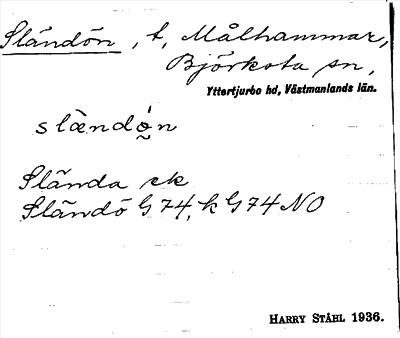 Sländön, t, Målhammar,
Björksta sn,
Yttertjurbo hd, Västmanlands län.
slændǫ́n
Slända ek
Sländö G 74, k G 74 NO
HARRY STÅHL 1936.